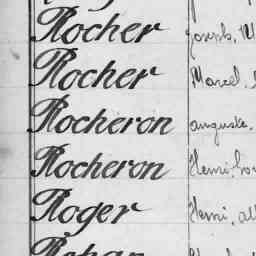 Rocher Joseph, M
Rocher Marcel,
Rocheron auguste,
Rocheron Henri,
Roger Henri, al